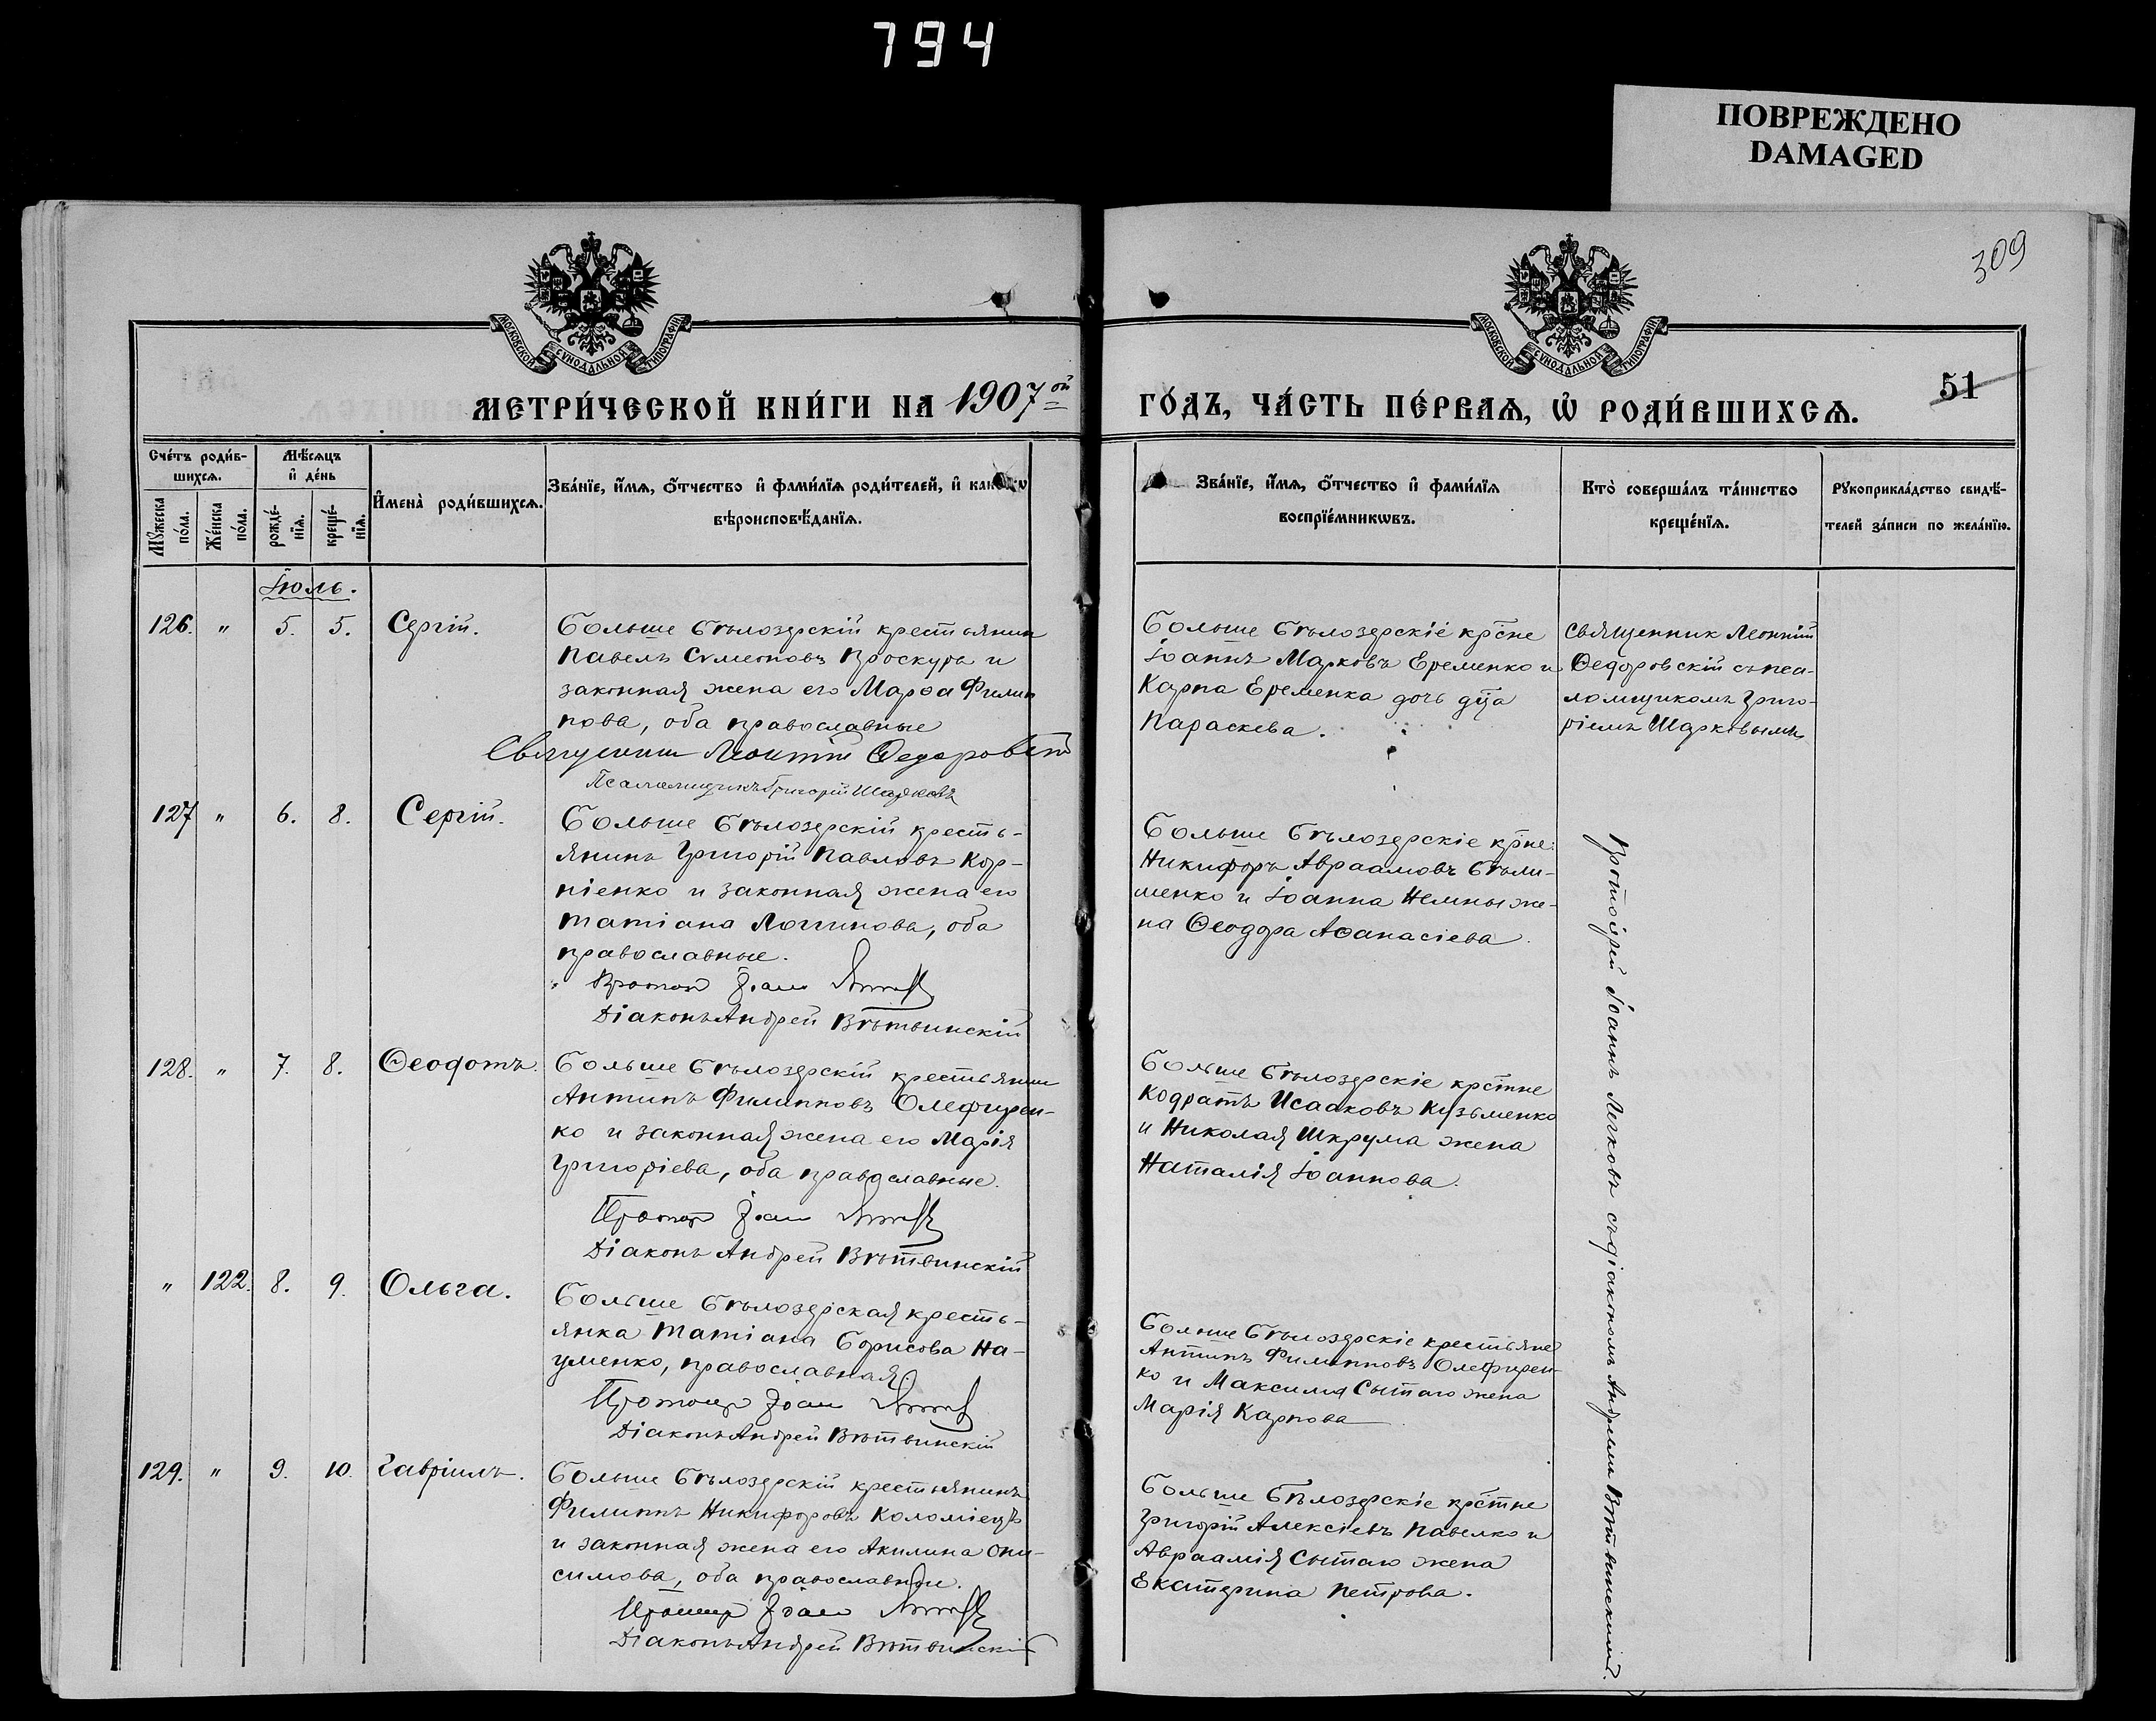 794
ПОВРЕЖДЕНО
DAMAGED
309
МОСКОВСКОЙ СѴНОДАЛЬНОЙ ТИПОГРАФІИ
МОСКОВСКОЙ СѴНОДАЛЬНОЙ ТИПОГРАФІИ
МЕТРИ́ЧЕСКОЙ КНИ́ГИ НА 1907ой
ГО́ДЪ, ЧА́СТЬ ПЕ́РВАѦ, Ѡ҆ РОДИ́ВШИХСѦ.
51
Сче́тъ роди́в-
шихсѧ.
Мѣ́сѧцъ
и҆ де́нь
Мꙋжеска по́ла.
Же́нска по́ла.
рожде́-нїѧ.
креще́-нїѧ.
И҆мена̀ роди́вшихсѧ.
Зва́нїе, и҆́мѧ, ѻ҆́тчество и҆ фами́лїѧ роди́телей, и҆
вѣроисповѣ́данїѧ.
Зва́нїе, и҆́мѧ, ѻ҆́тчество и҆ фами́лїѧ
воспрїе́мникѡвъ.
Кто̀ соверша́лъ та́инство
креще́нїѧ.
Рꙋкоприкла́дство свидѣ́-
телей за́писи по жела́нїю.
Іюль.
126. " 5. 5. Сергій.
Больше Бѣлозерскій крестьянин
Павелъ Сѵмеоновъ Проскура и
законная жена его Марѳа Филип
пова, оба православные
Священник Леонтій Ѳедоровскій
Псаломщикъ Григорій Шарковъ
Больше Бѣлозерскіе крс̃не
Іоаннъ Марковъ Еременко и
Карпа Еременка дочь дв̃ца
Параскева.
Священник Леонтій
Ѳедоровскій съ пса-
ломщикомъ Григо-
ріемъ Шарковымъ
127 " 6. 8. Сергій.
Больше Бѣлозерскій кресть-
янинъ Григорій Павловъ Кор-
ніенко и законная жена его
Татіана Логинова, оба
православные.
Протоіер Іоан
Діаконъ Андрей Вѣтвинскій
Больше Бѣлозерскіе крс̃не:
Никифоръ Авраамовъ Бѣли-
менко и Іоанна Немны же-
на Ѳеодора Аѳанасіева.
Протоіерей Іоаннъ Легковъ съ діакономъ Андреемъ Вѣтвинскимъ.
128. " 7. 8. Ѳеодотъ.
Больше Бѣлозерскій крестьянин
Антипъ Филипповъ Олефирен-
ко и законная жена его Марія
Григоріева, оба православные.
Протоіер Іоан
Діаконъ Андрей Вѣтвинскій
Больше Бѣлозерскіе крс̃тне
Кодратъ Исааковъ Кузьменко
и Николая Шкрума жена
Наталія Іоаннова.
" 122. 8. 9. Ольга.
Больше Бѣлозерская кресть-
янка Татіана Борисова На-
уменко, православная.
Протоіер Іоан
Діаконъ Андрей Вѣтвинскій
Больше Бѣлозерскіе крестьяне
Антипъ Филипповъ Олефирен-
ко и Максима Сытаго жена
Марія Карпова
129. " 9. 10. Гавріилъ.
Больше Бѣлозерскій крестьянинъ
Филиппъ Никифоровъ Коломіецъ
и законная жена его Акилина Они-
симова, оба православные.
Протоіер Іоан
Діаконъ Андрей Вѣтвинскій
Больше Бѣлозерскіе крс̃тне
Григорій Алексіевъ Павелко и
Авраамія Сытаго жена
Екатерина Петрова.